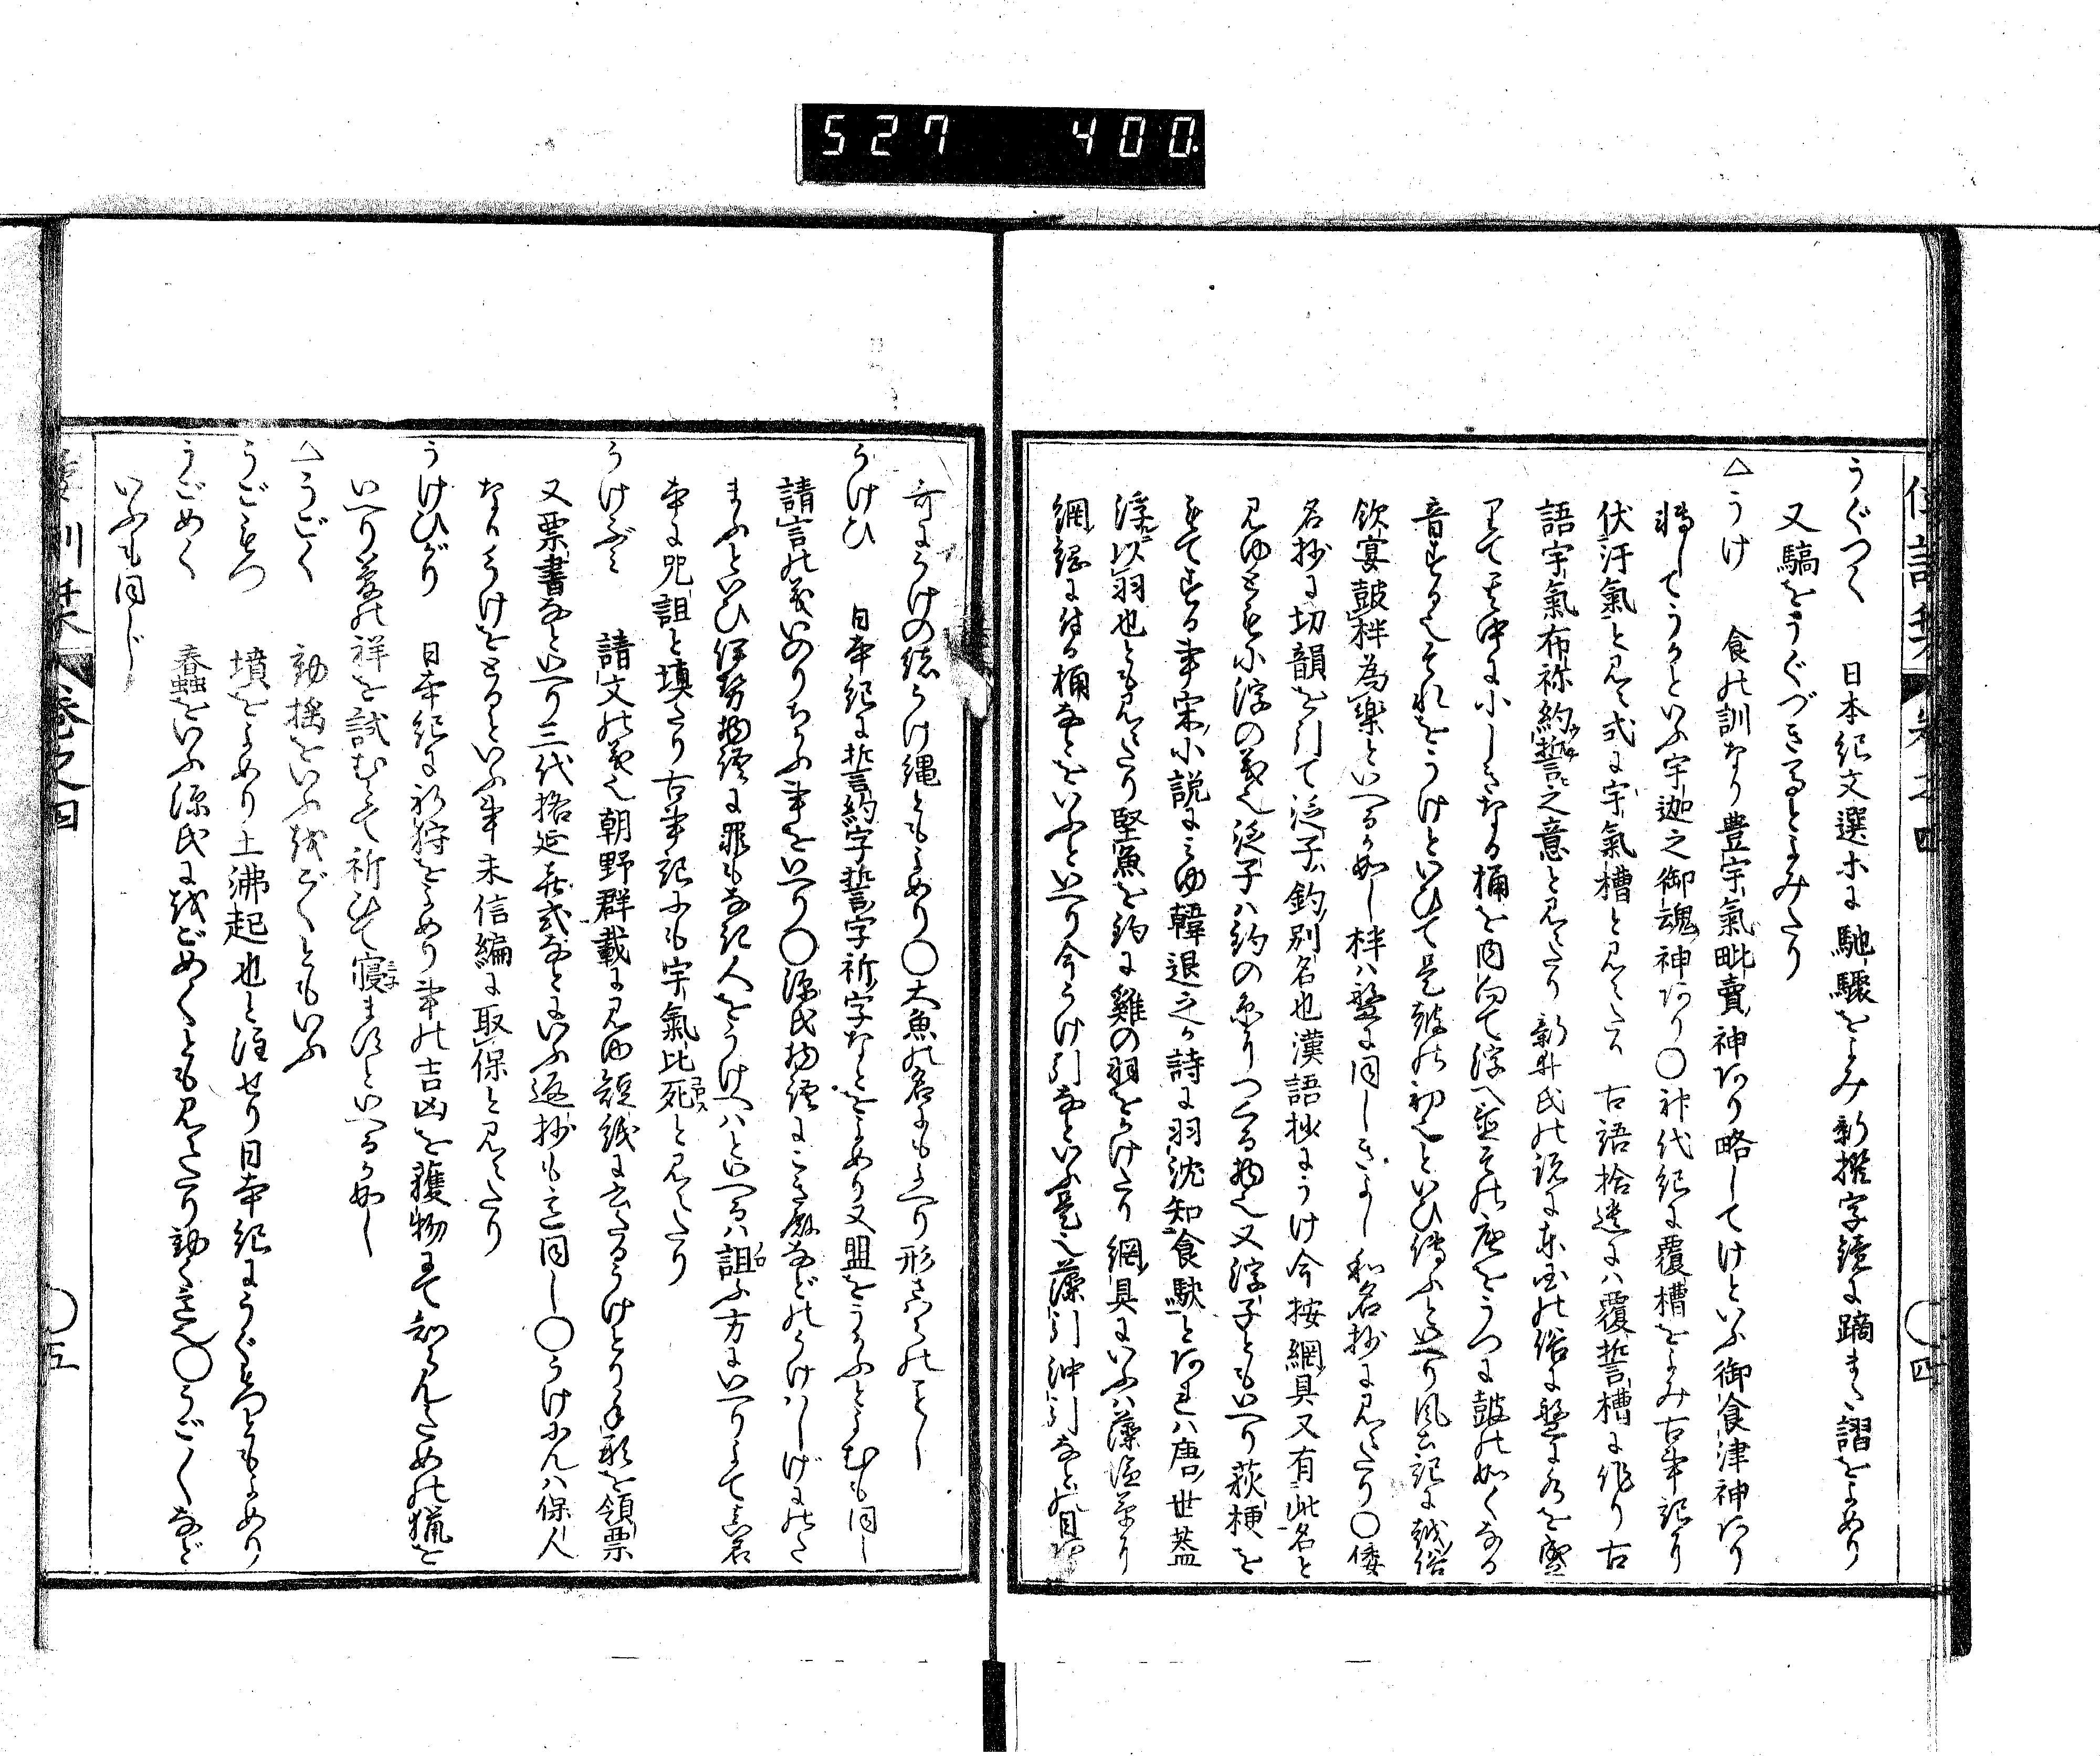 527 400
うぐつく 日本紀文選ホに馳驟をよみ新撰字鏡に蹢また謵をよめり
又驕をうぐづきるとよみたり
△うけ 食の訓なり豊宇氣毗賣神あり略してけといふ御食津神あり
轉してうかといふ宇迦之御魂神あり○神代紀に覆槽をよみ古事記に
伏汙氣と見え式に宇氣槽と見えたり 古語拾遺には覆誓槽に作り古
語宇氣布祢約誓之意と見えたり新井氏の説に東国の俗に盤に水を盛
りて其中に小しきなる桶を内向て浮へ並其の底をうつに鼓の如くなる
音するそれをうけといひて是鼓の初也といひ傳ふと也り風土記に越俗
飲宴鼓柈為樂といへるか如し柈ハ盤に同しきよし和名抄に見えたり○倭
名抄に切韻を引て泛子釣別名也漢語抄にうけ今按網具又有此名と
見ゆもと小浮の義也泛子ハ釣の糸につくる物也又浮子ともいへり荻梗を
もてする事宋小説にみゆ韓退之か詩に羽沈知食駛とあれハ唐世蓋
浮以羽也とも見えたり堅魚を釣に雞の羽をかけたり網具にいふハ藻塩草に
網縄に付る桶なとをいふといへり今うけ引なといふ是也藻引沖引なとの目あり
哥にうけの緒うけ縄ともよめり○大魚の名にもいへり形さハらの如し
うけひ 日本紀に誓約字誓字祈字なとをよめり又盟をうかふとよむも同し
請言の義いのりちかふ事をいへり○源氏物語にこき殿などのうけハしげにのた
まふといひ伊勢物語に罪もなき人をうけへハといへるハ詛ふ方にいへりよて真名
本に咒詛と填たり古事記にも宇氣比死と見えたり
うけぶミ 請文の義也朝野群載に見ゆ短紙に書たるうけとり手形を領票
又票書なといへり三代格延喜式なとにいふ返抄も意同し○うけにんハ保人
なりうけをとるといふ事未信編に取保と見えたり
うけひがり 日本紀に祈狩をよめり事の吉凶を獲物にて知らんための猟を
いへり夢の祥を試むとて祈ひて寝ませといへるか如し
△うごく 動揺をいふ哉ごくともいふ
うごもつ 墳をよめり土沸起也と注せり日本紀にうぐもつともよめり
うごめく 蠢をいふ源氏に哉ごめくとも見えたり動く意也○うごうごなど
いふも同じ
倭訓栞 巻之四 ○四
倭訓栞 巻之四 ○五